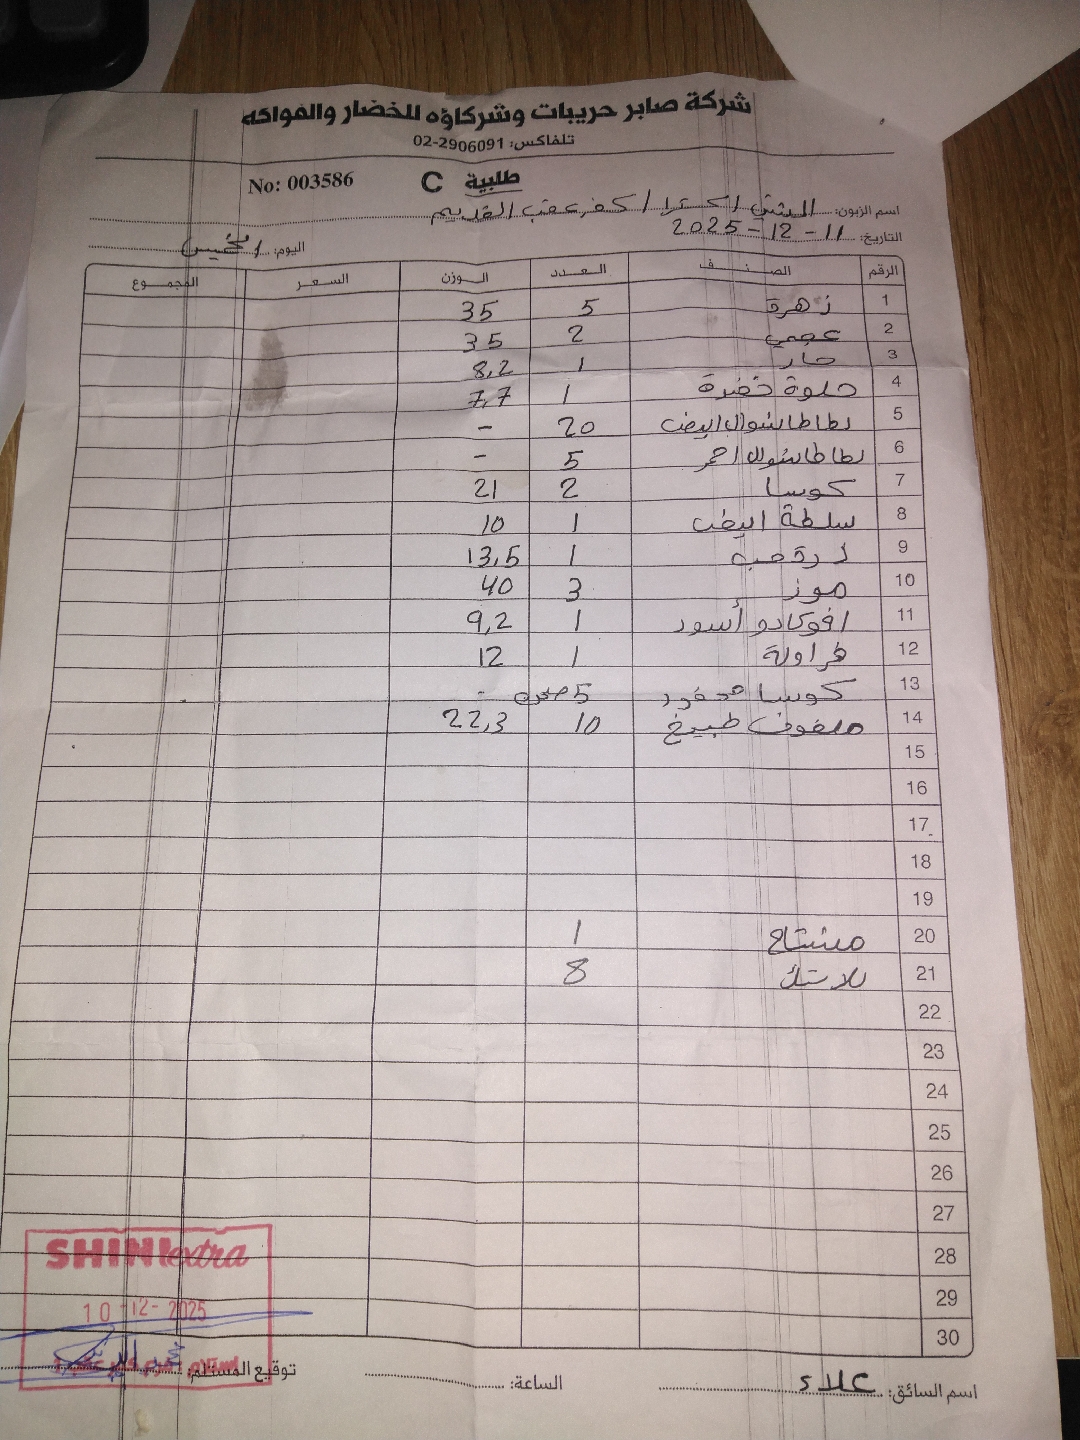 شركة صابر حريبات وشركاؤه للخضار والفواكه
تلفاكس: 02-2906091
No: 003586 طلبية C
اسم الزبون: الشني اكسترا / كفر عقب القديم
التاريخ: 11-12-2025 اليوم: الخميس
الرقم الصنف العدد الوزن السعر المجموع
1 زهرة 5 35
2 عجمي 2 35
3 حار 1 8,2
4 حلوة خضرة 1 7,7
5 بطاطا شوال ابيض 20 -
6 بطاطا شوال احمر 5 -
7 كوسا 2 21
8 سلطة ابيض 1 10
9 ذرة حب 1 13,5
10 موز 3 40
11 افوكادو أسود 1 9,2
12 فراولة 1 12
13 كوسا محفور 5 صحن -
14 ملفوف طبيخ 10 22,3
15
16
17
18
19
20 مشتاح 1
21 بلاستك 8
22
23
24
25
26
27
28
29
30
SHINI extra
10-12-2025
اسم السائق: علاء الساعة: توقيع المستلم: